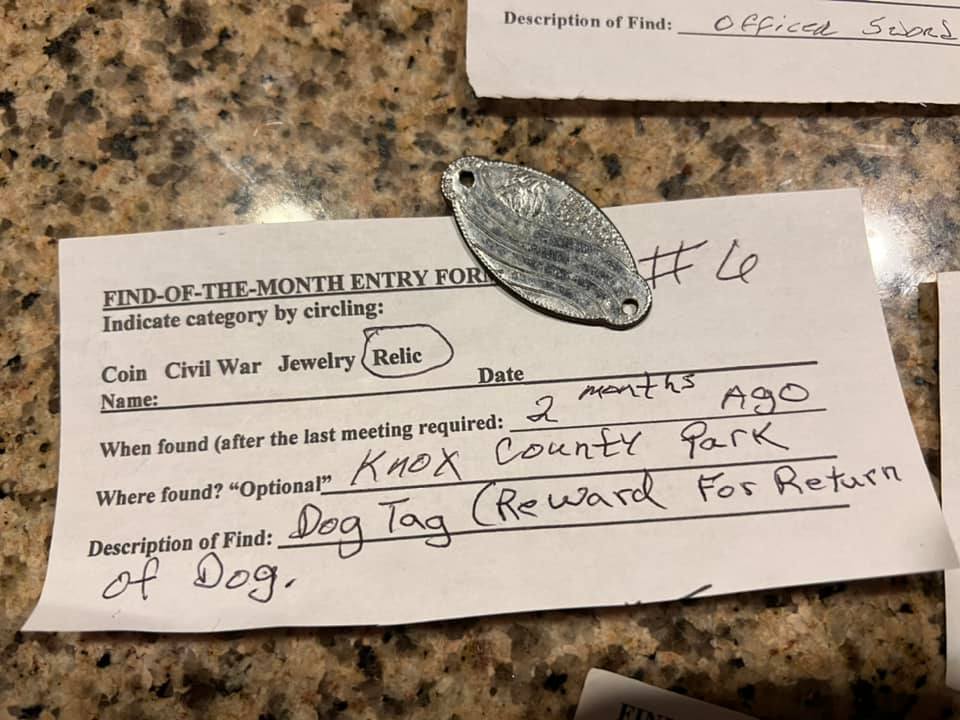 Description of Find: Officer Sword
#6
FIND-OF-THE-MONTH ENTRY FOR
Indicate category by circling:
Coin Civil War Jewelry Relic
Name: Date
When found (after the last meeting required: 2 months Ago
Where found? “Optional” Knox County Park
Description of Find: Dog Tag (Reward For Return
of Dog.